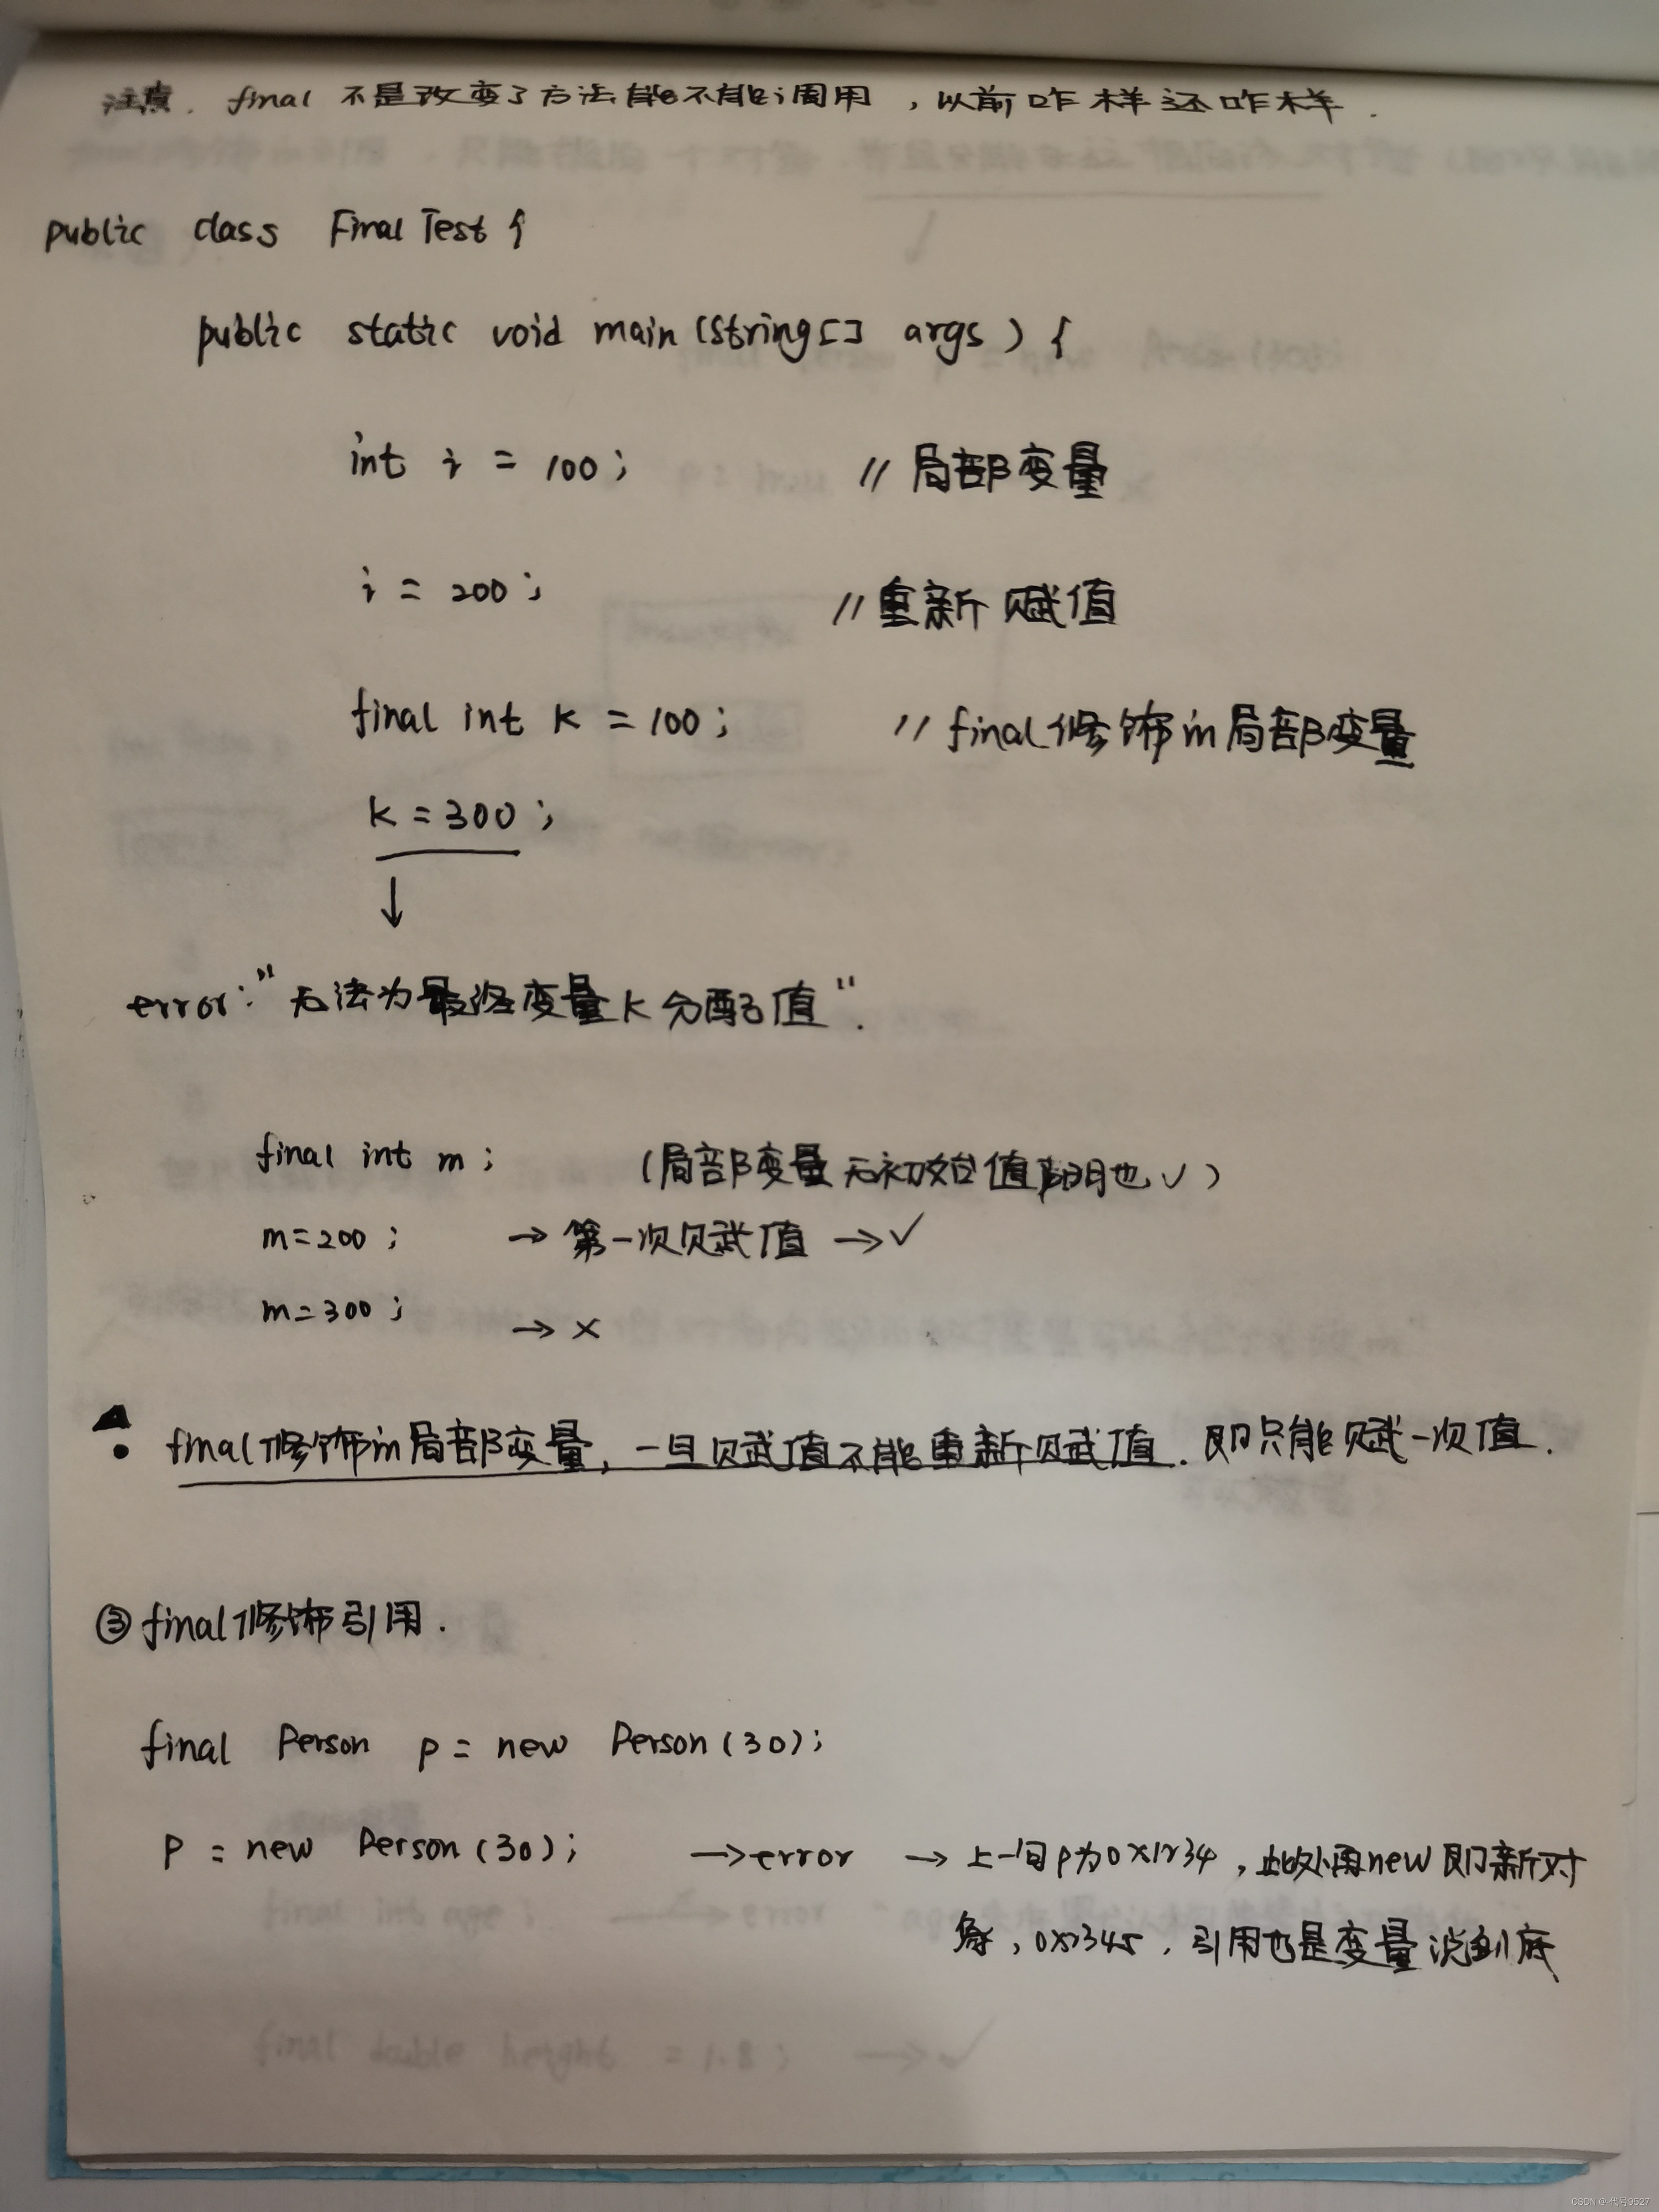 注意. final 不是改变了方法能不能调用，以前咋样还咋样.
public class FinalTest {
public static void main(String[] args) {
int i = 100; // 局部变量
i = 200; // 重新赋值
final int k = 100; // final修饰的局部变量
k = 300;
↓
error: "无法为最终变量k分配值".
final int m; (局部变量无初始值声明也✓)
m=200; → 第一次赋值 → ✓
m=300; → ×
final修饰的局部变量，一旦赋值不能重新赋值. 即只能赋一次值.
③ final修饰引用.
final Person p = new Person(30);
P = new Person(30); → error → 上一句p为0x1234，此处再new即新对
象，0x2345，引用也是变量说到底
CSDN @代号9527